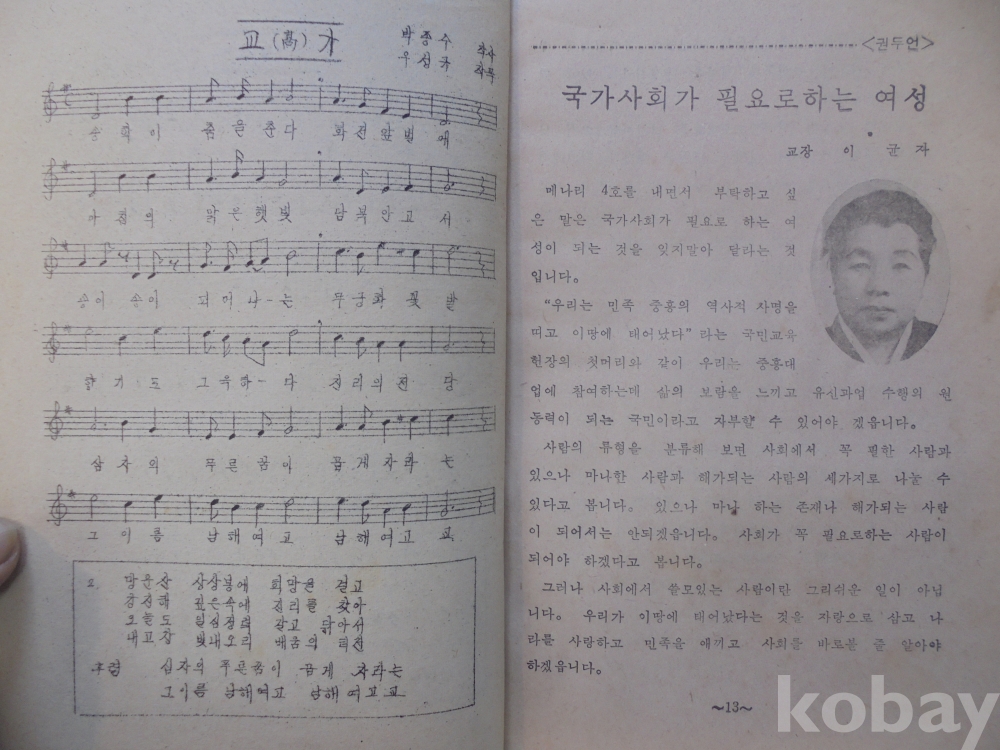 교(高)가
박종수 작사
우성규 작곡
송학이 춤을춘다 화전앞벌에
아침의 맑은햇빛 담북안고서
송이송이 피어나-는 무궁화꽃밭
향기도 그윽하-다 진리의전당
십자의 푸른꿈이 곱게자라는
그이름 남해여고 남해여고교
2 망운산 상상봉에 희망을 걸고
깊은속에 진리를 찾아
오늘도 갈고 닦아서
내고장 빛내오리 배움의 터전
후렴 십자의 푸른꿈이 곱게 자라는
그이름 남해여고 남해여고교
<권두언>
국가사회가 필요로하는 여성
교장 이균자
메나리 4호를 내면서 부탁하고 싶
은 말은 국가사회가 필요로 하는 여
성이 되는 것을 잊지말아 달라는 것
입니다.
“우리는 민족 중흥의 역사적 자명을
띠고 이땅에 태어났다” 라는 국민교육
헌장의 첫머리와 같이 우리는 중흥대
업에 참여하는데 삶의 보람을 느끼고 유신과업 수행의 원
동력이 되는 국민이라고 자부할 수 있어야 겠읍니다.
사람의 류형을 분류해 보면 사회에서 꼭 필한 사람과
있으나 마나할 사람과 해가되는 사람의 세가지로 나눌 수
있다고 봅니다. 있으나 마나 하는 존재나 해가되는 사람
이 되어서는 안되겠읍니다. 사회가 꼭 필요로하는 사람이
되어야 하겠다고 봅니다.
그러나 사회에서 쓸모있는 사람이란 그리쉬운 일이 아닙
니다. 우리가 이땅에 태어났다는 것을 자랑으로 삼고 나
라를 사랑하고 민족을 애끼고 사회를 바로볼 줄 알아야
하겠읍니다.
~13~
kobay